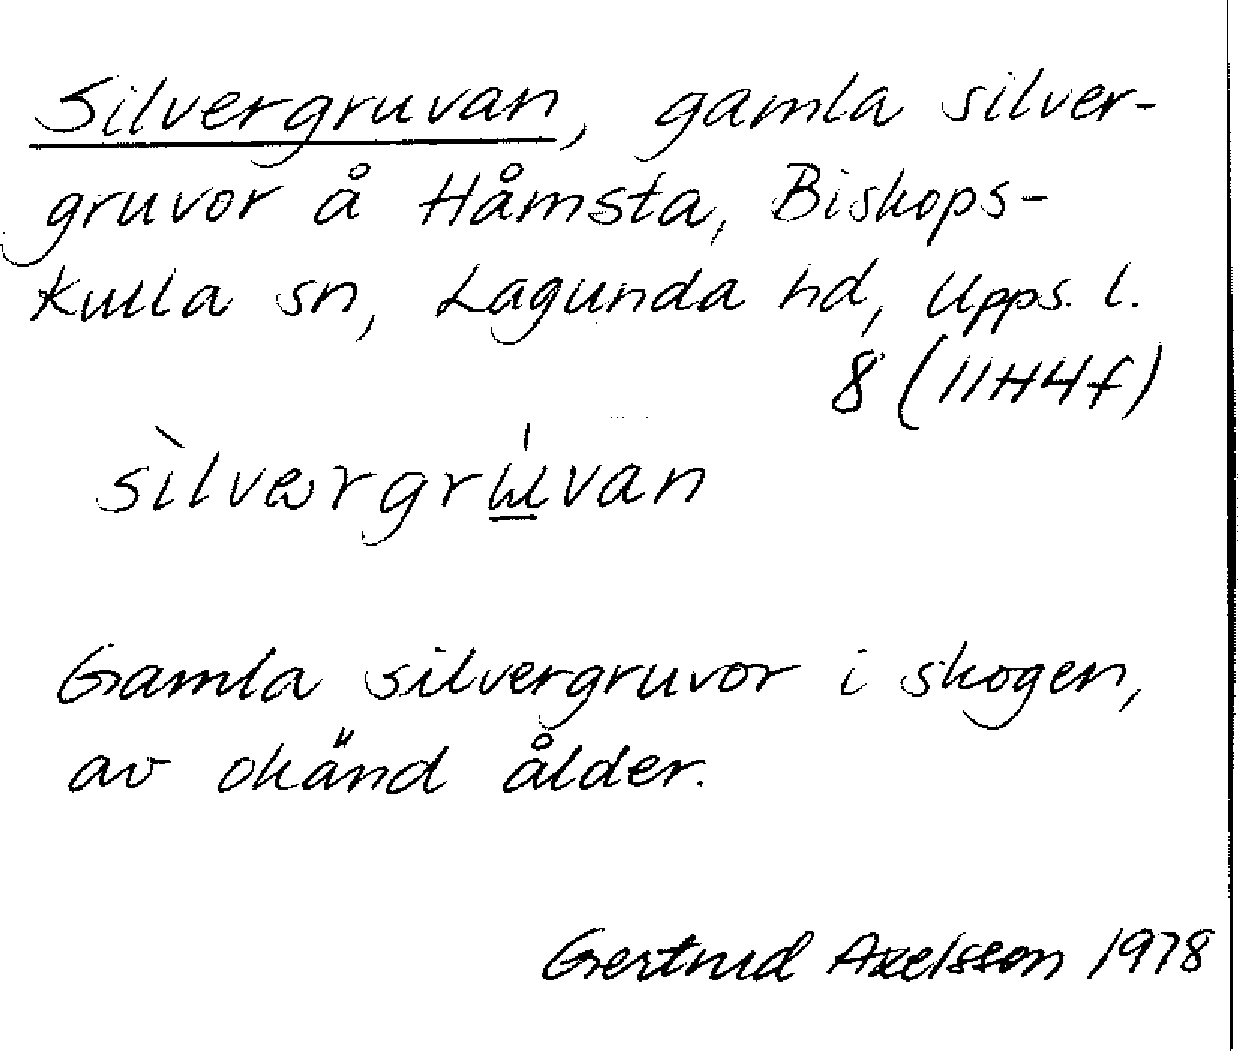 Silvergruvan, gamla silver-
gruvor å Håmsta, Biskops-
kulla sn, Lagunda hd, Upps. l.
8 (11H4f)
Gamla silvergruvor i skogen,
av okänd ålder.
Gertrud Axelsson 1978